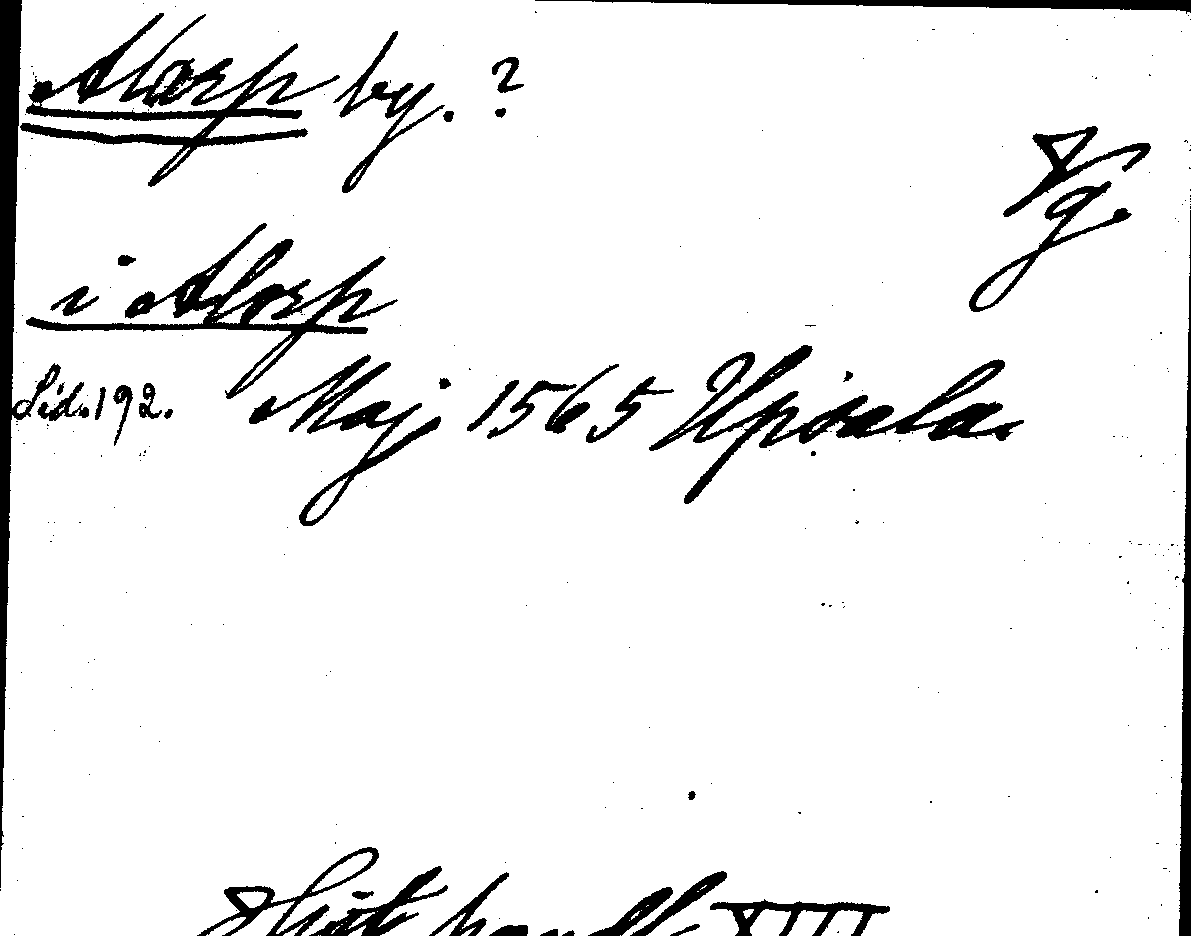 Alorp by. ?
Vg.
i Alorp
Sid. 192. Maj 1565 Upsala.
handl. XIII